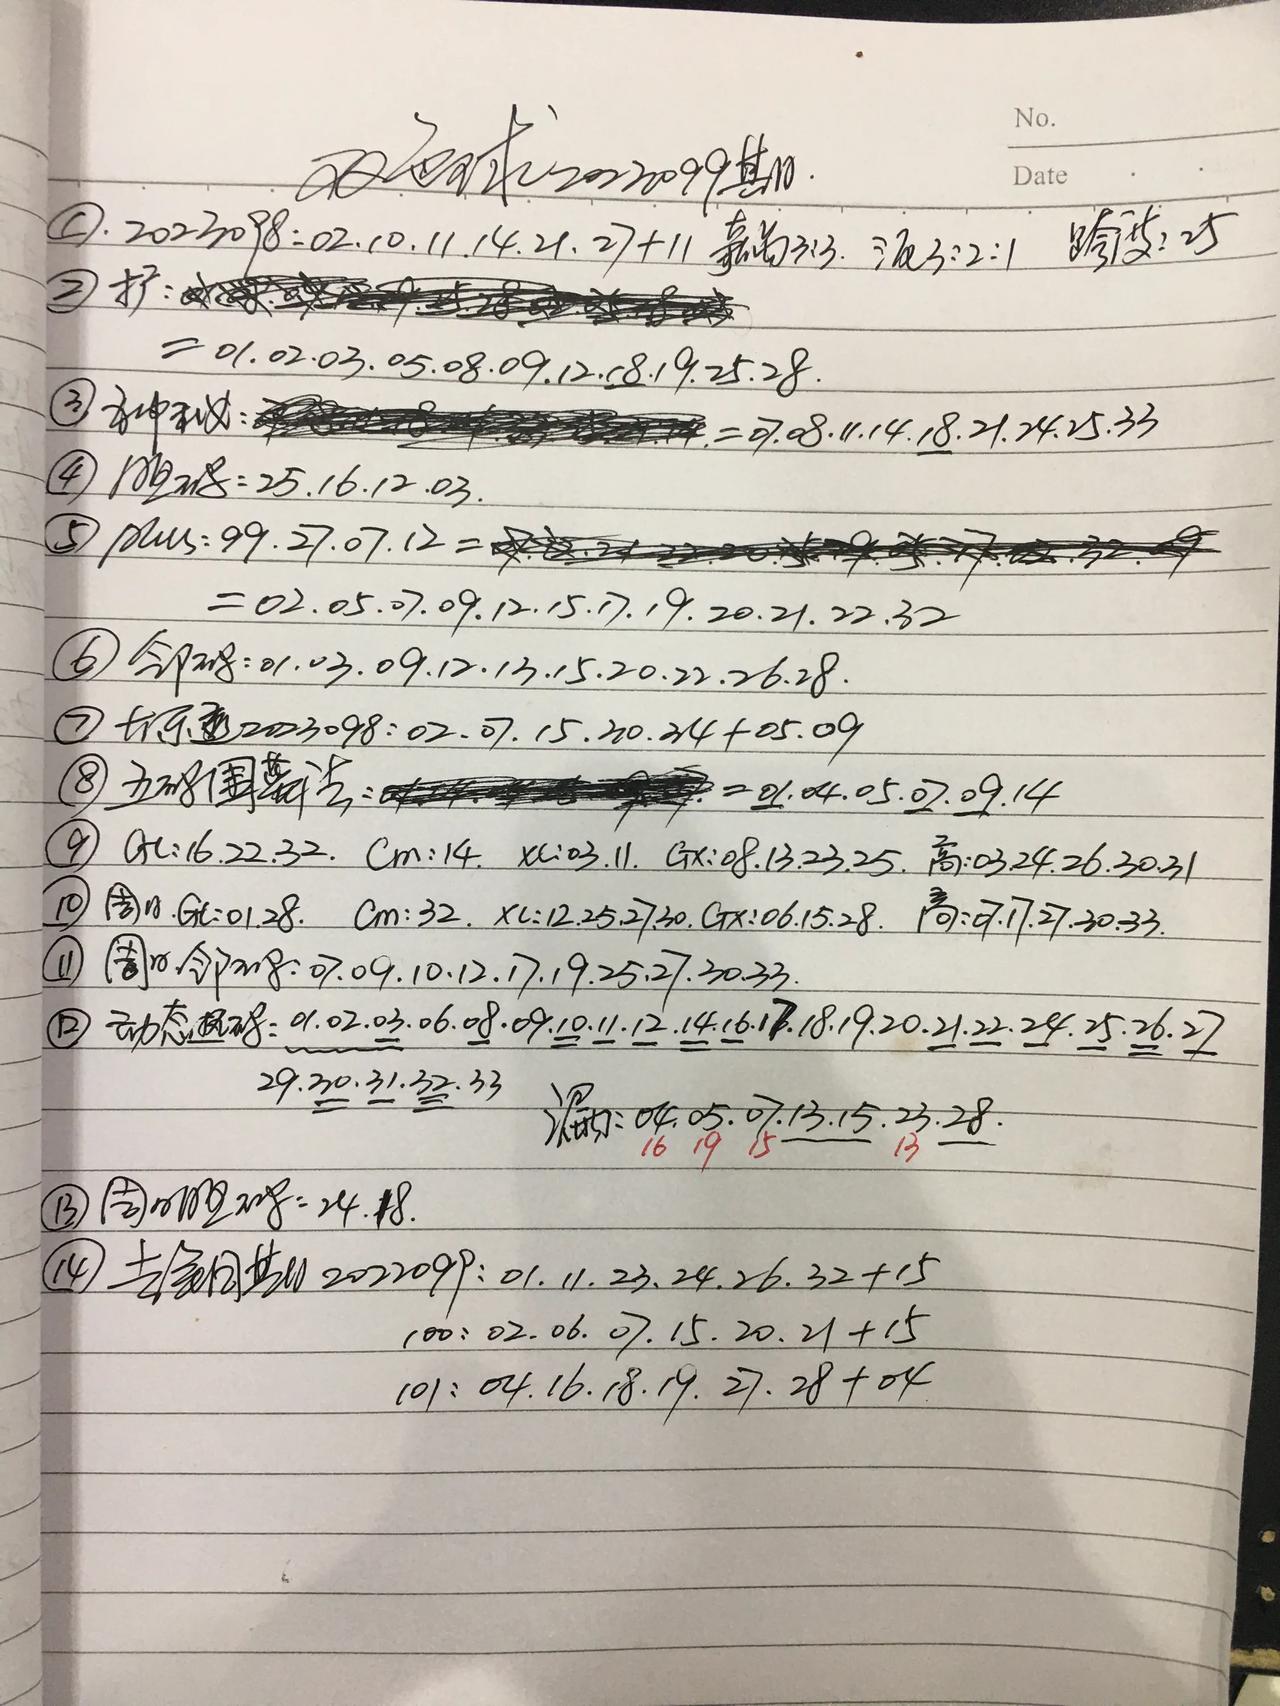 No.
Date
双色球2023099期
① 2023098:02.10.11.14.21.27+11 3:3. 3:2:1 跨度:25
②
=01.02.03.05.08.09.12.18.19.25.28.
③ =07.08.11.14.18.21.24.25.33
④ 胆码:25.16.12.03.
⑤ plus:99.27.07.12=
=02.05.07.09.12.15.17.19.20.21.22.32
⑥ 邻码:01.03.09.12.13.15.20.22.26.28.
⑦ 大乐透2023098:02.07.15.30.34+05.09
⑧ 五码围 法: =01.04.05.07.09.14
⑨ GL:16.22.32. Cm:14. XL:03.11. GX:08.13.23.25. 高:03.24.26.30.31
⑩ 周日.GL:01.28. Cm:32. XL:12.25.27.30. GX:06.15.28. 高:07.17.27.30.33.
⑪ 周日邻码:07.09.10.12.17.19.25.27.30.33.
⑫ 动态 码:01.02.03.06.08.09.10.11.12.14.16.17.18.19.20.21.22.24.25.26.27
29.30.31.32.33
漏的:04.05.07.13.15.23.28.
16 19 15 13
⑬ 周日胆码:24.18.
⑭ 去年同期 2022099:01.11.23.24.26.32+15
100:02.06.07.15.20.21+15
101:04.16.18.19.27.28+04